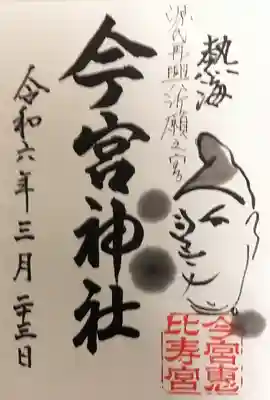 熱海
源氏再興祈願之宮
今宮神社
令和六年三月二十三日
今宮恵
比寿宮